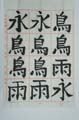 鳥鳥雨永
鳥鳥鳥雨
永永鳥雨